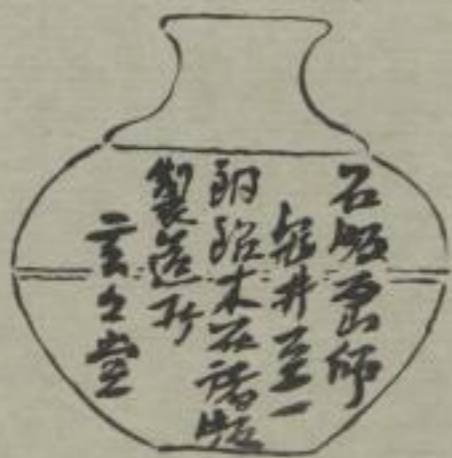 石版画師
亀井至一
銅鉛木石諸版
製造所
玄々堂